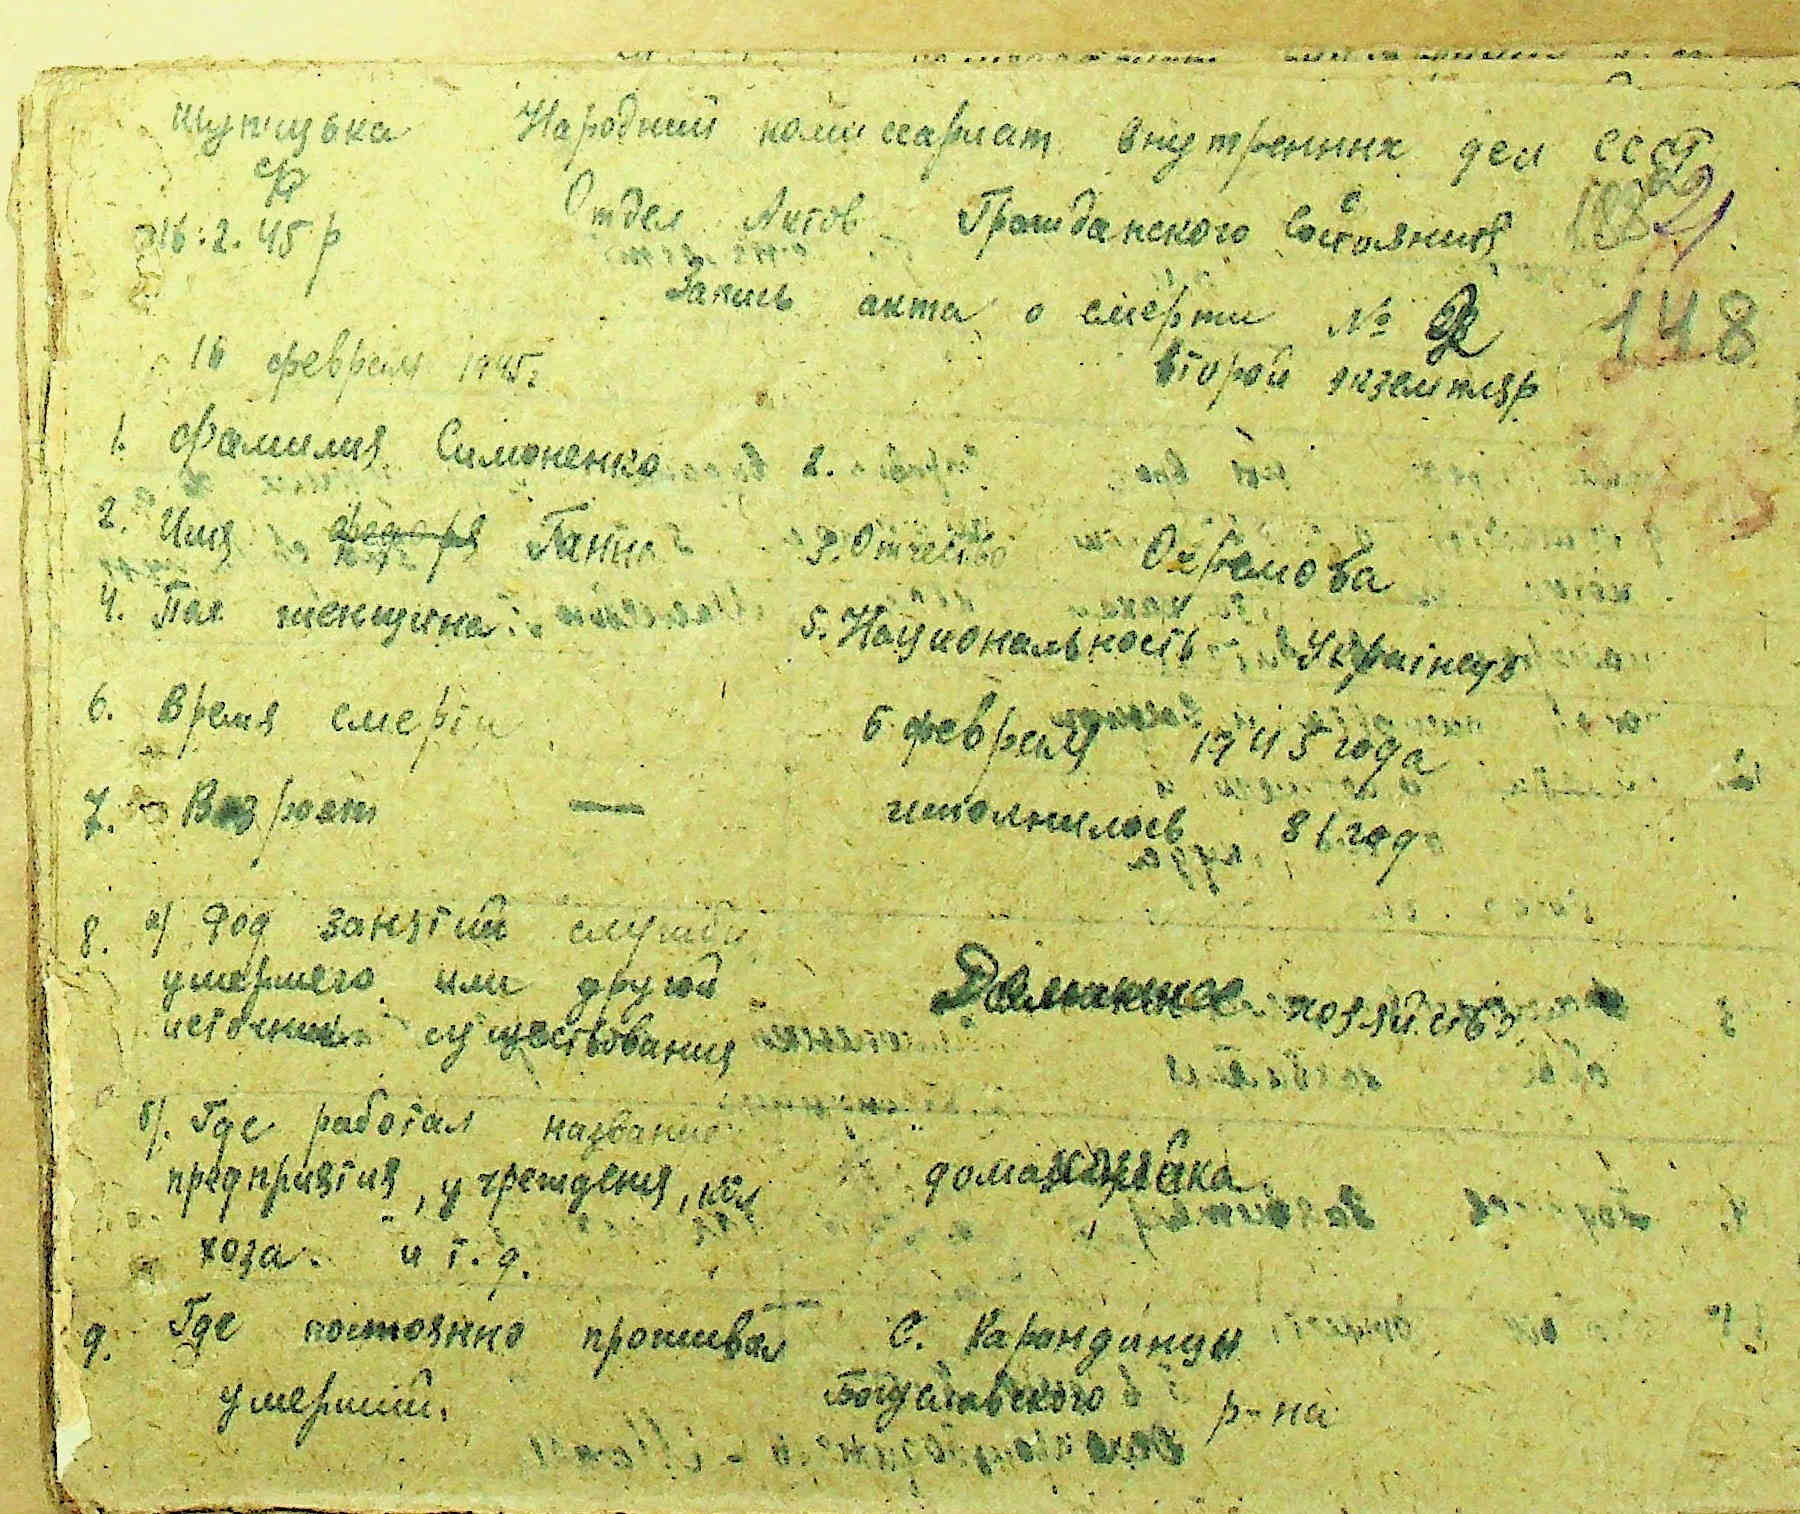 Народний комиссариат внутренних дел СССР
16.2.45 р Отдел Актов Гражданского Состояния 188
Запись акта о смерти № 2 148
16 февраля 1945г. второй экземпляр
1. Фамилия Симоненко
2. Имя Ганна 3. Отчество Охремова
4. Пол женщина. 5. Национальность Українец
6. Время смерти 5 февраля 1945 года
7. Возраст — исполнилось 81 год
8. а) Род занятий служби
умершего или другой Домашнее хозяйство
источник существования
б). Где работал название
предприятия, учреждения, кол домахозяйка
хоза. и т. д.
9. Где постоянно проживал С. Карандинци
умерший. р-на